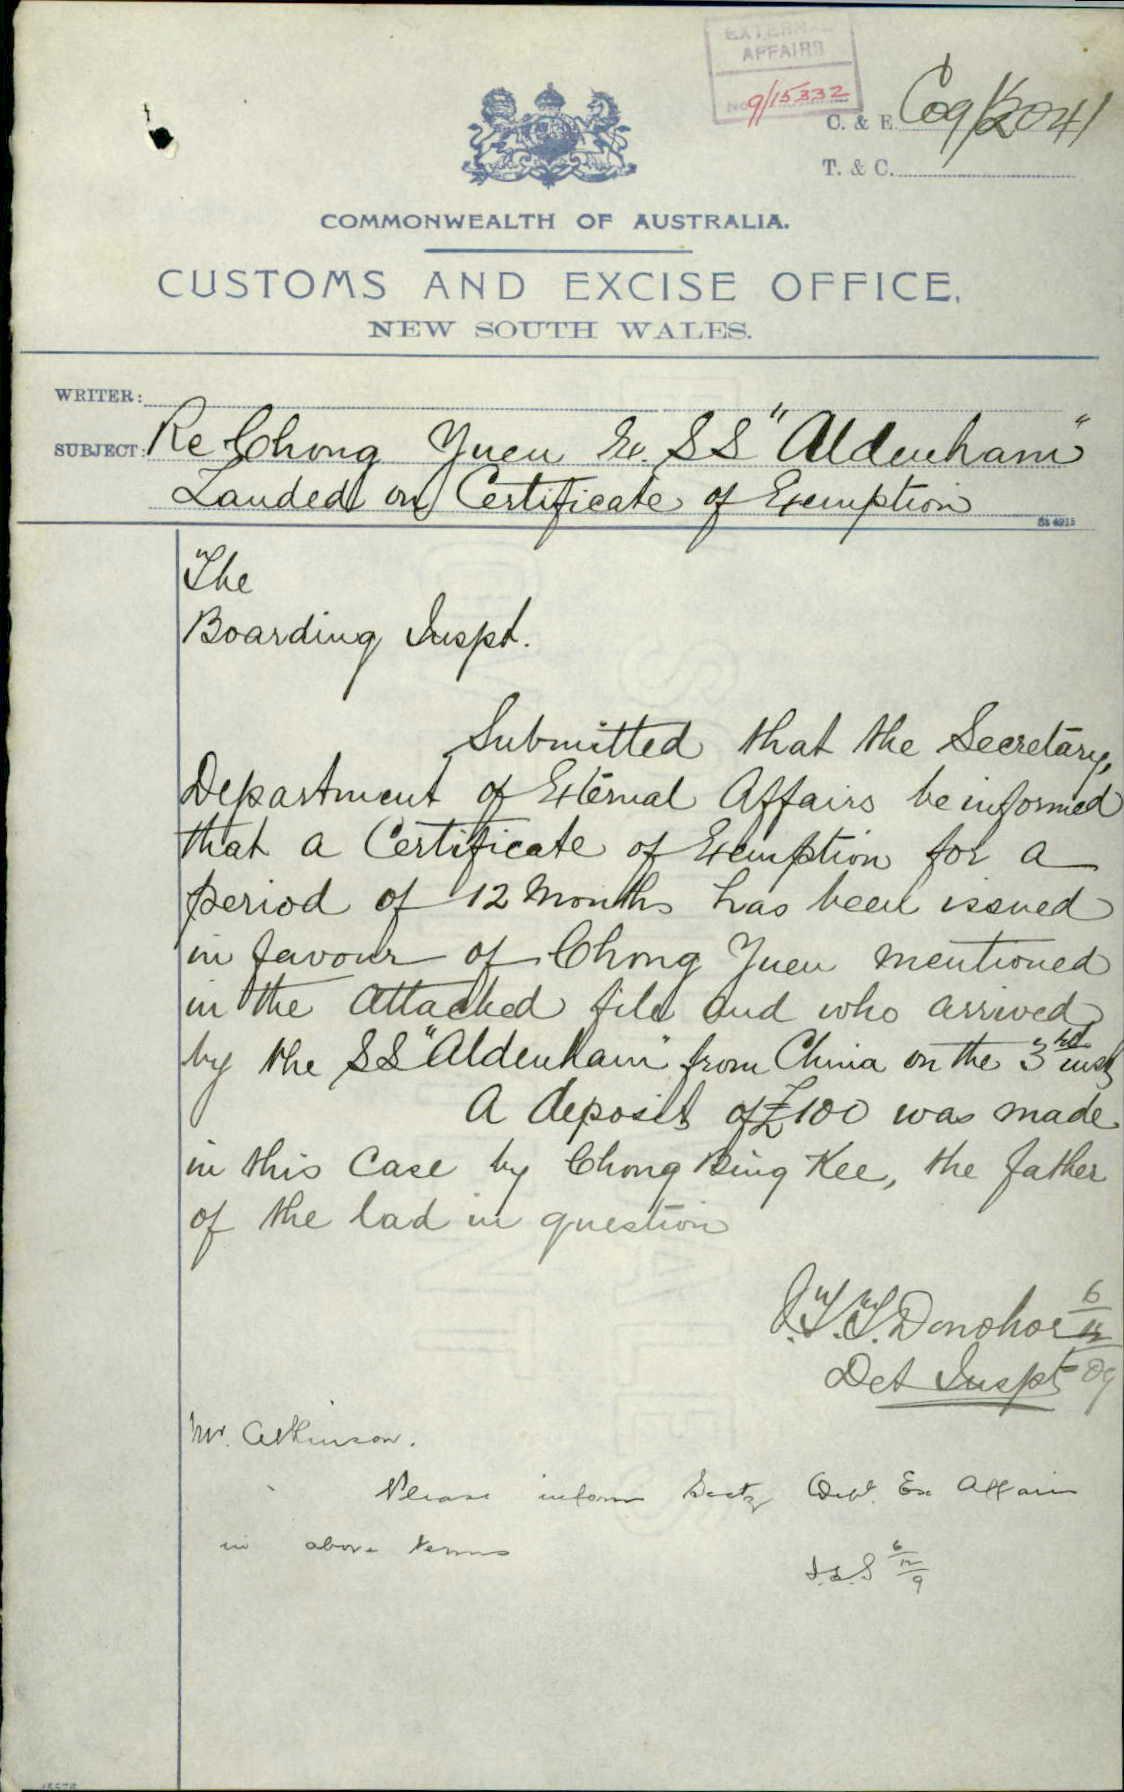 EXTERNAL
AFFAIRS
No 9/15332
C. & E. C09/12041
T. & C.
COMMONWEALTH OF AUSTRALIA.
CUSTOMS AND EXCISE OFFICE.
NEW SOUTH WALES.
WRITER:
SUBJECT: Re Chong Yuen Ex. SS "Aldenham"
Landed on Certificate of Exemption
The
Boarding Inspt.
Submitted that the Secretary,
Department of External Affairs be informed
that a Certificate of Exemption for a
period of 12 Months has been issued
in favour of Chong Yuen mentioned
in the attached file and who arrived
by the SS "Aldenham" from China on the 3rd inst
A deposit of £100 was made
in this case by Chong Bing Kee, the father
of the lad in question
J.T.T. Donohoe 6/12/09
Det Inspt
Mr. Atkinson.
Please inform Secty Dept. Ex Affairs
in above terms
6/12/9